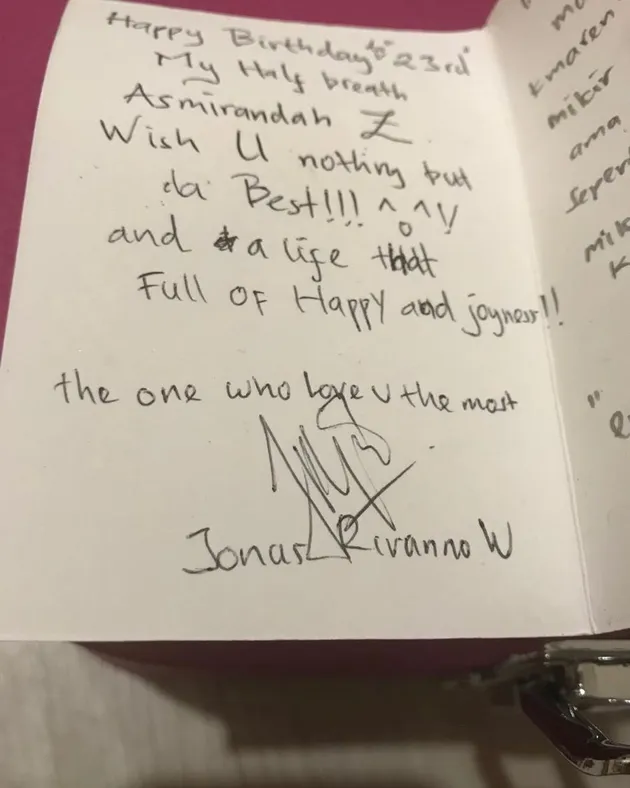 Happy Birthday to "23rd"
My Half breath
Asmirandah Z
Wish U nothing but
da Best!!! ^o^V
and a life that
Full OF Happy and joyness!!
the one who love U the most
Jonas Rivanno W
kmaren
mikir
ama